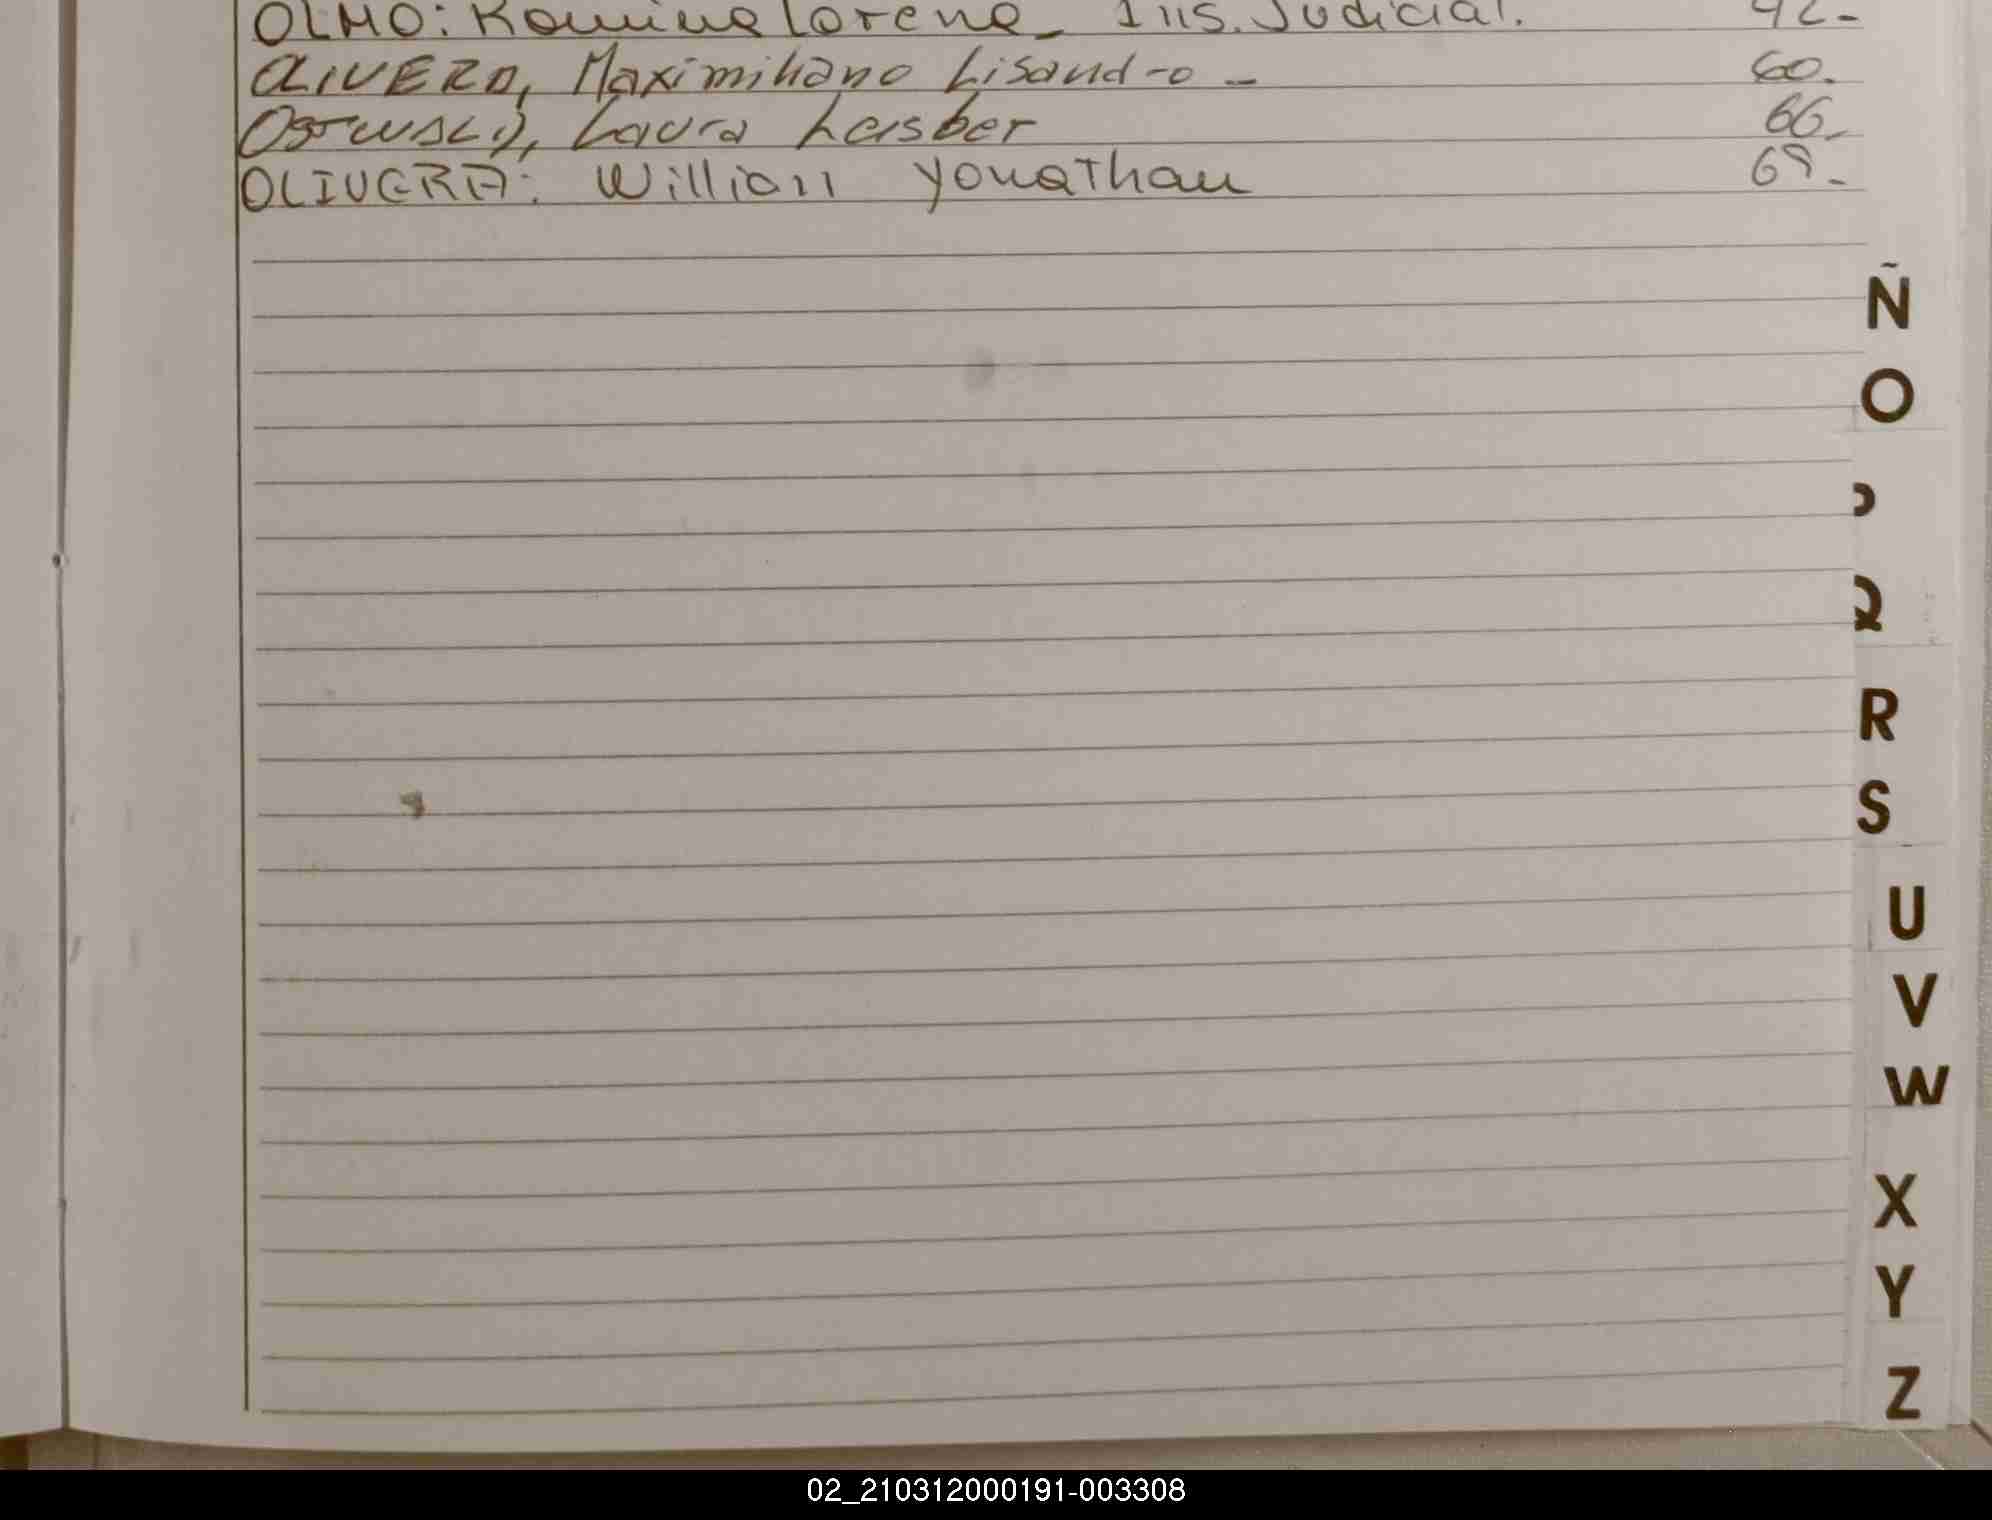 OLMO: Romina Lorena_ Ins. Judicial. 42-
OLIVERO, Maximiliano Lisandro - 60.
Laura 66_
OLIVERA: Willian Yonathan 69-
Ñ
O
P
Q
R
S
U
V
W
X
Y
Z
02_210312000191-003308